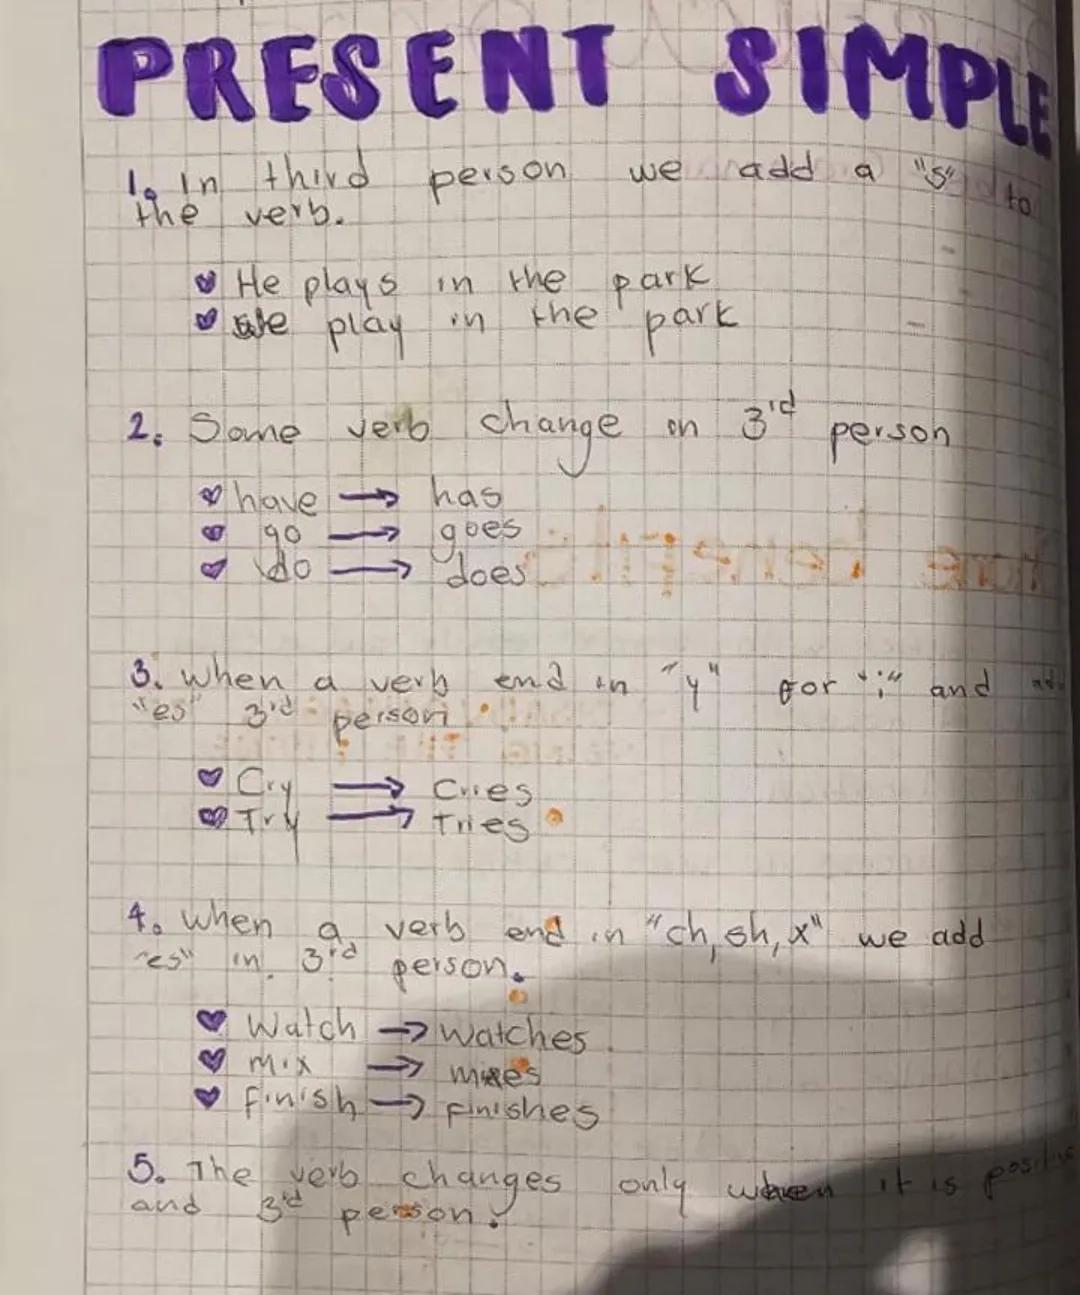 PRESENT SIMPLE
1. In third person we add a "s" to
the verb.
He plays in the park
We play in the park
2. Some verb change on 3rd person
have → has
go → goes
do → does
3. When a verb end in "y" for "i" and
"es" 3rd person
Cry → Cries
Try → Tries
4. When a verb end in "ch, sh, x" we add
"es" in 3rd person.
Watch → Watches
mix → mixes
finish → finishes
5. The verb changes only when it is positive
and 3rd person.